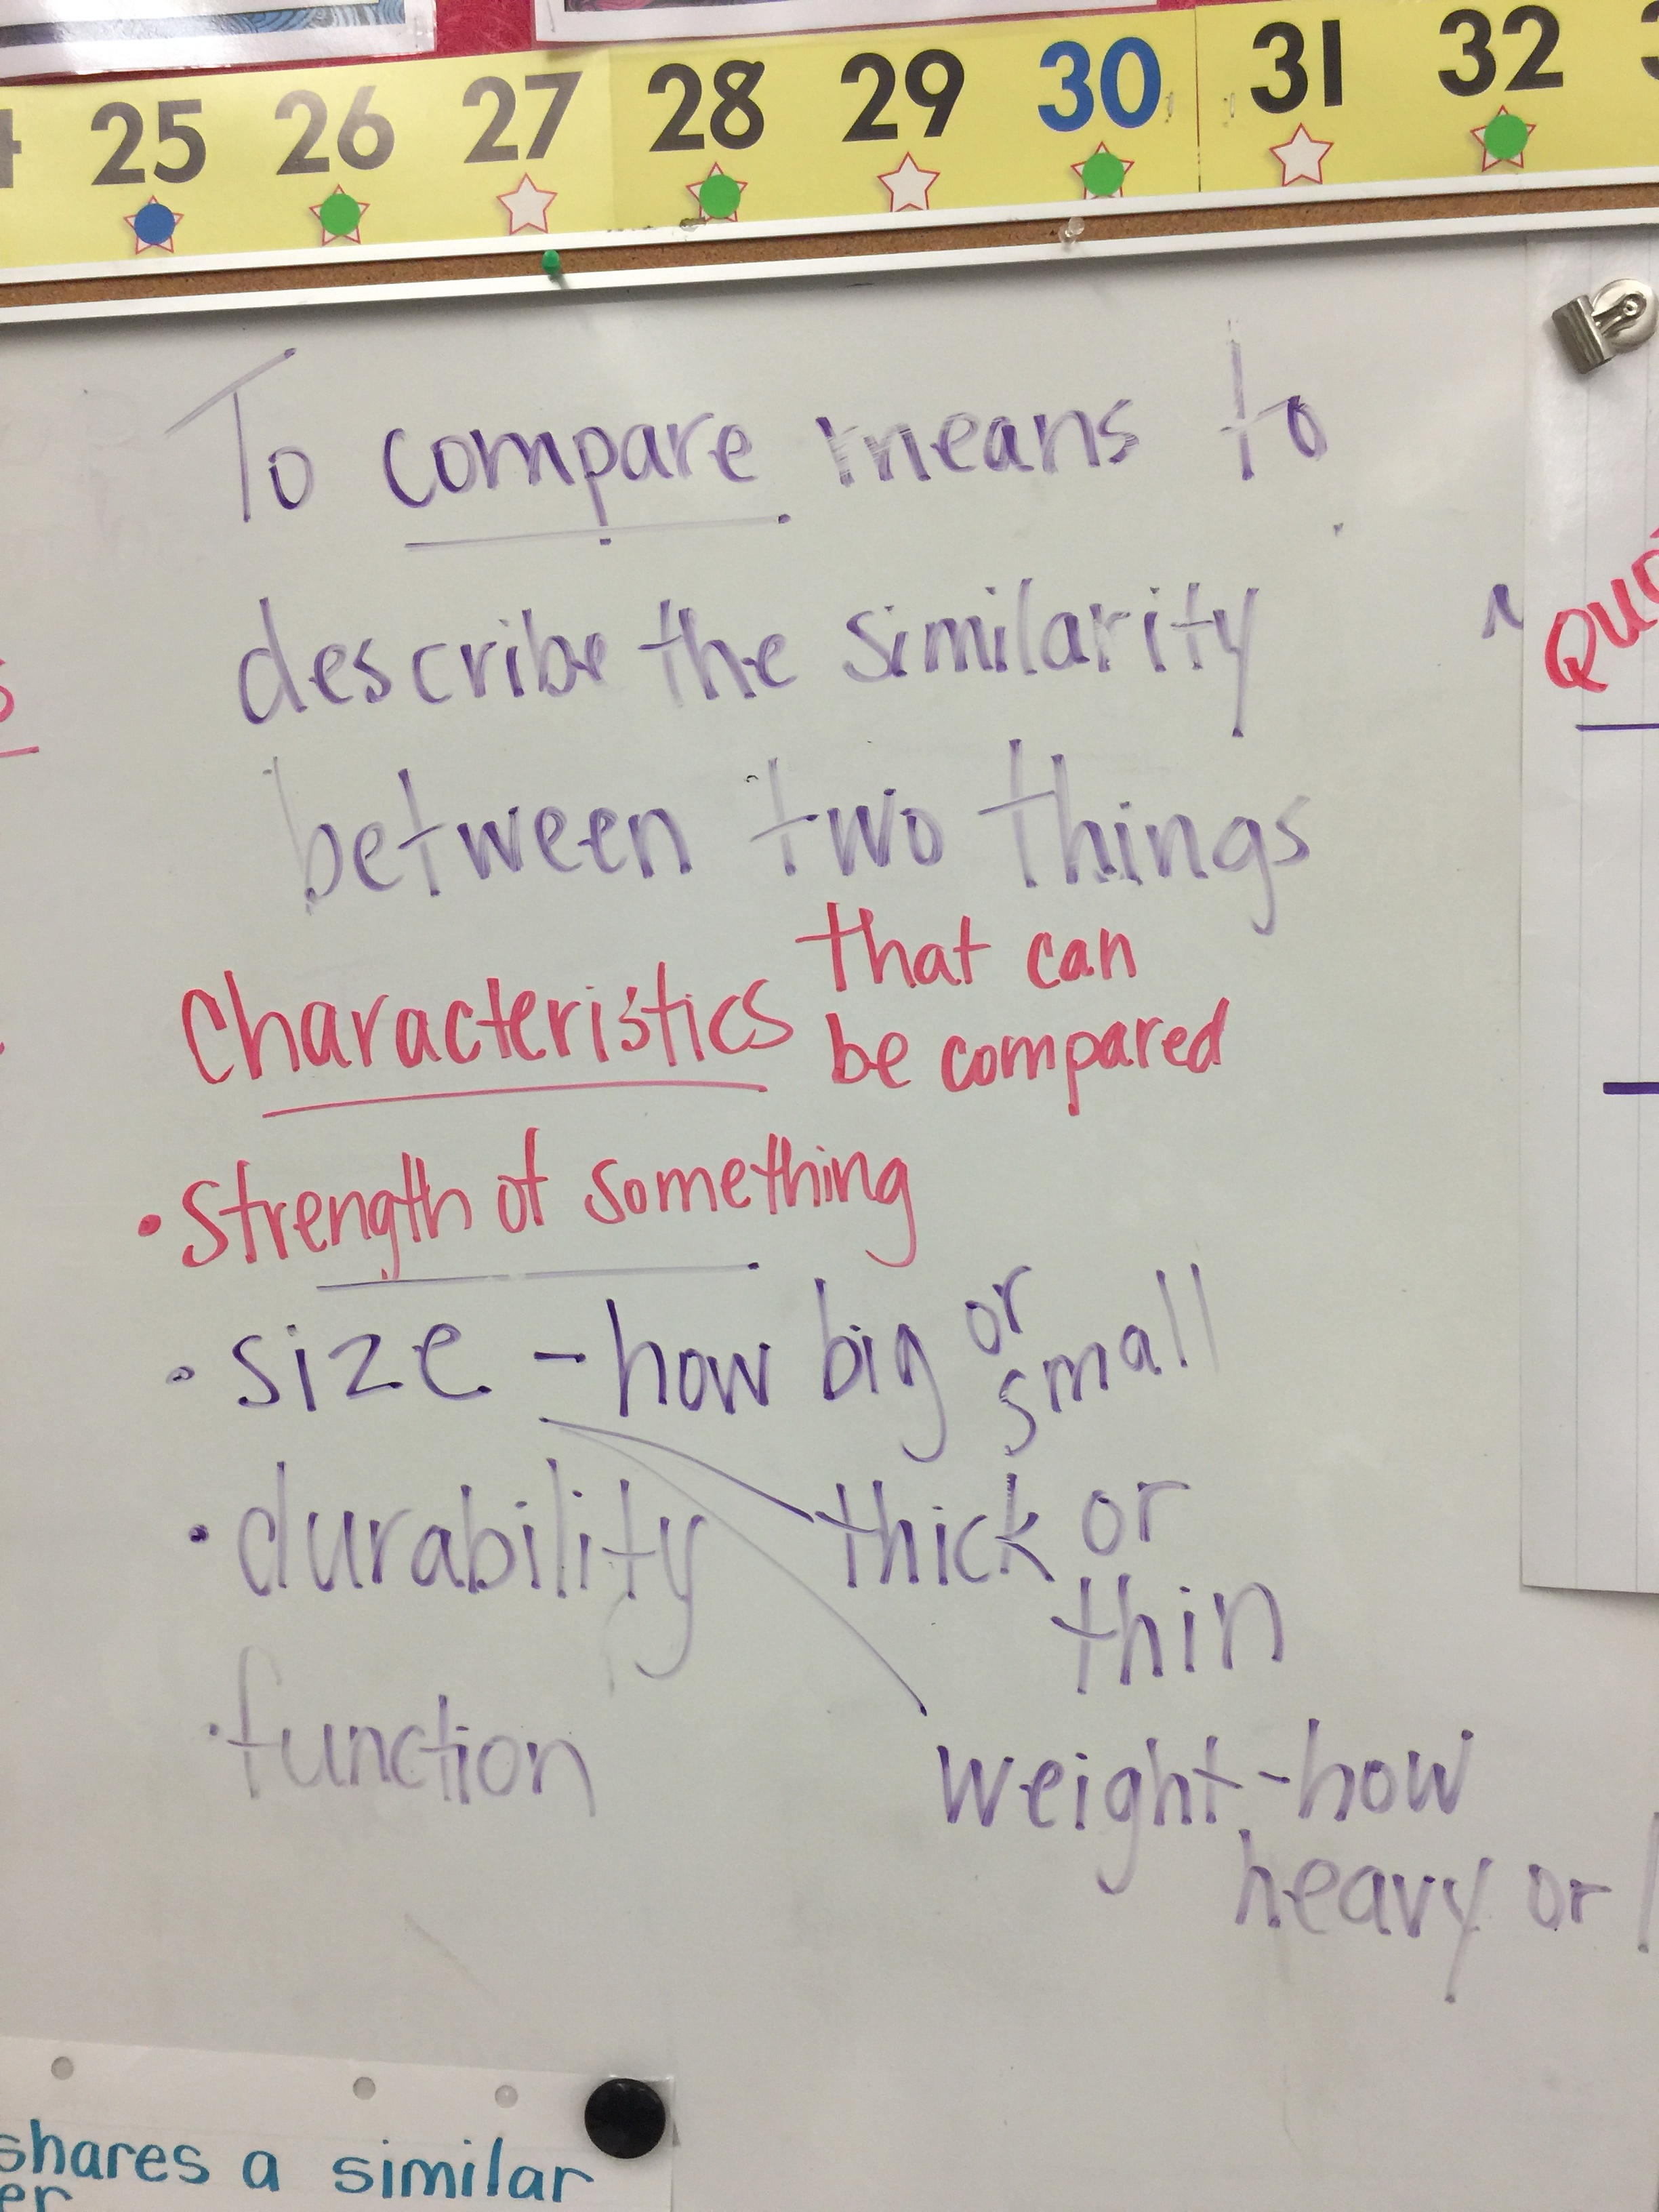 25 26 27 28 29 30 31 32
To compare means to
describe the similarity
between two things
Characteristics that can
be compared
• Strength of something
• size - how big or
small
thick or
thin
• durability
• function
weight - how
heavy or
shares a similar
er